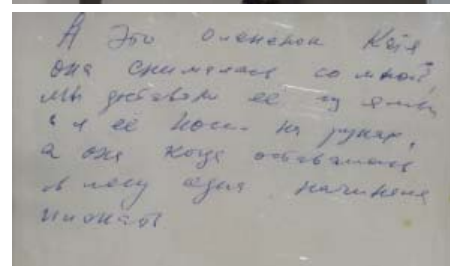 А Это олененок Катя
она снималась со мной,
мы доставали её из ямы
и я её носил на руках,
а она когда оставалась
в лесу одна начинала
пиокать